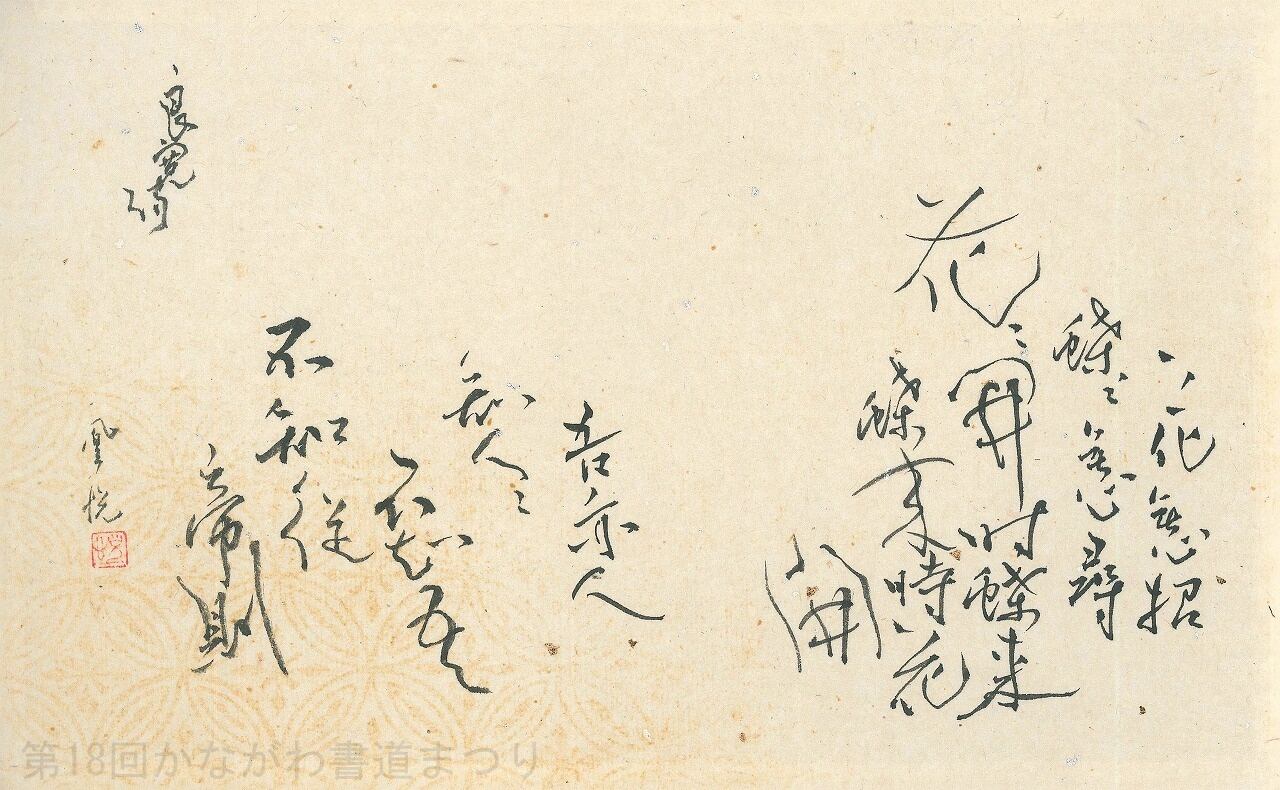 花無心招
蝶〻無心尋
花〻開時蝶来
蝶来時花
開
吾亦人
知人〻
不知吾
不知従
帝則
良寛詩
第18回かながわ書道まつり